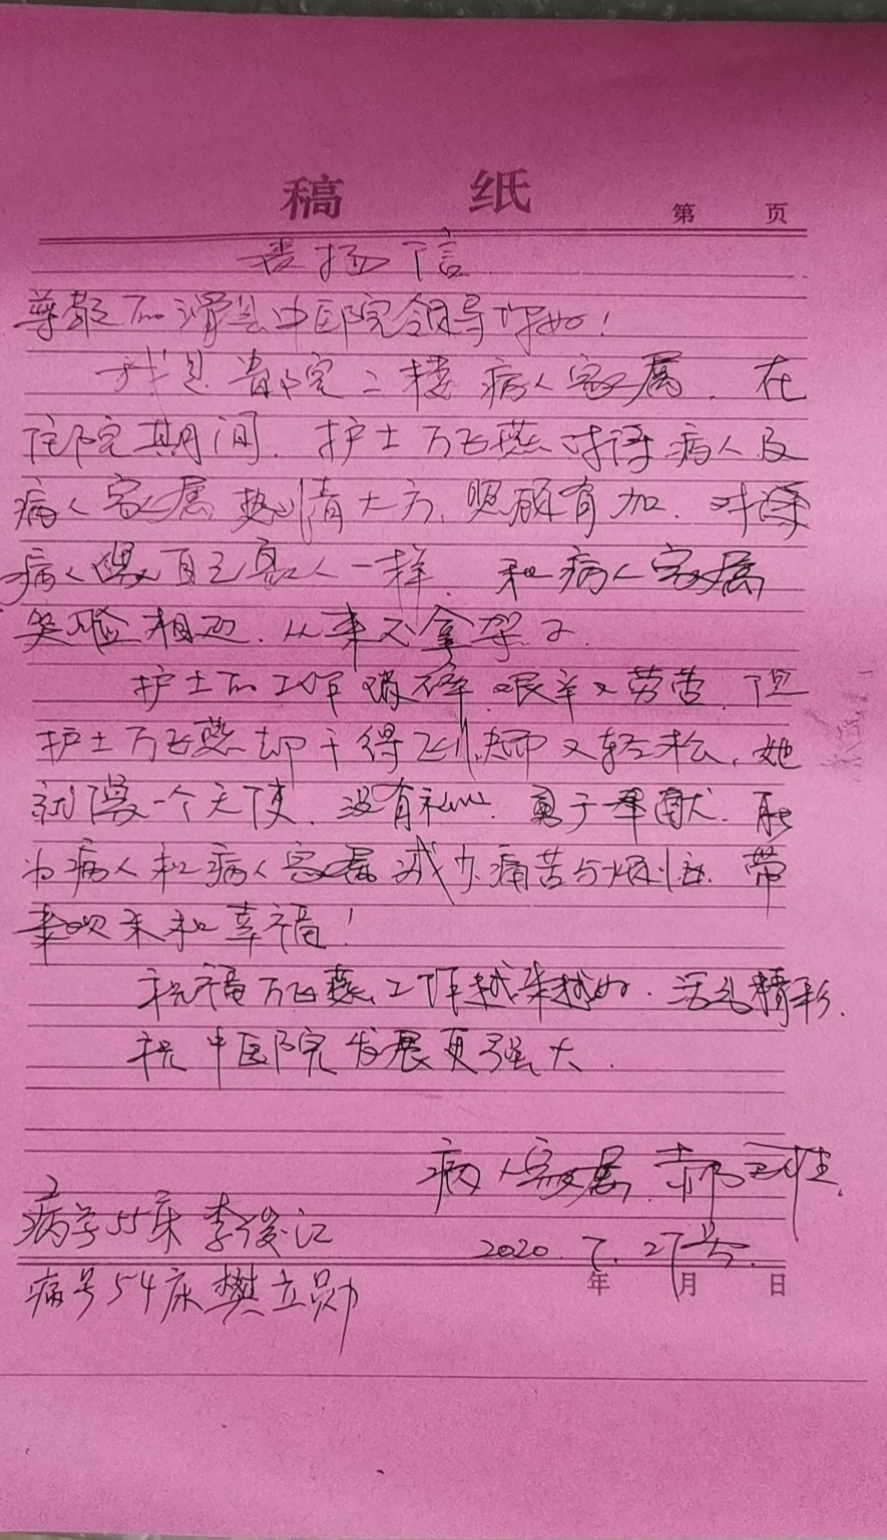 稿 纸
第 页
表扬信
尊敬的滑县中医院领导你好！
我是贵院二楼病人家属．在
住院期间．护士万飞燕对待病人及
病人家属热情大方．照顾有加．对待
病人像自己家人一样．和病人家属
笑脸相迎．从来不拿架子．
护士的工作琐碎 艰辛又劳苦．但
护士万飞燕却干得飞快而又轻松．她
就像一个天使．没有私心．勇于奉献．能
为病人和病人家属减少痛苦与烦恼．带
来欢乐和幸福！
祝福万飞燕工作越来越好．活儿精彩．
祝中医院发展更强大．
病人家属 郝
病号55床 李俊江
2020.7.27号.
年 月 日
病号54床樊立勋